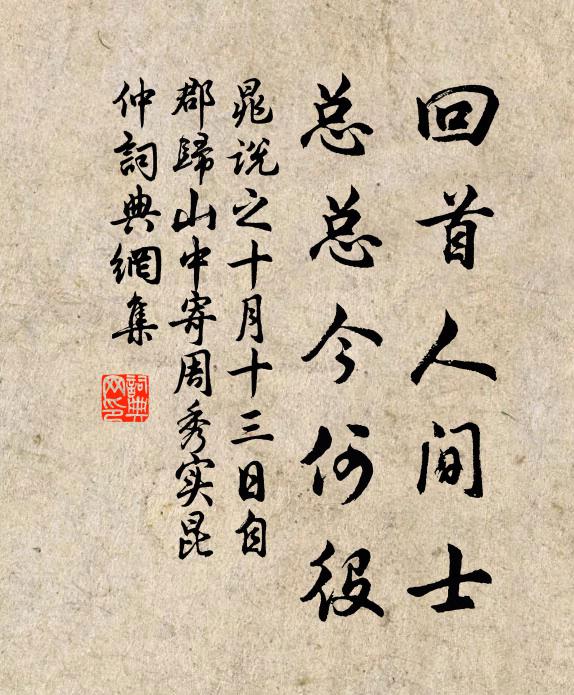 回首人间士
总总今何役
晁说之十月十三日自
郡歸山中寄周秀实昆
仲詞典網集
詞典
网印